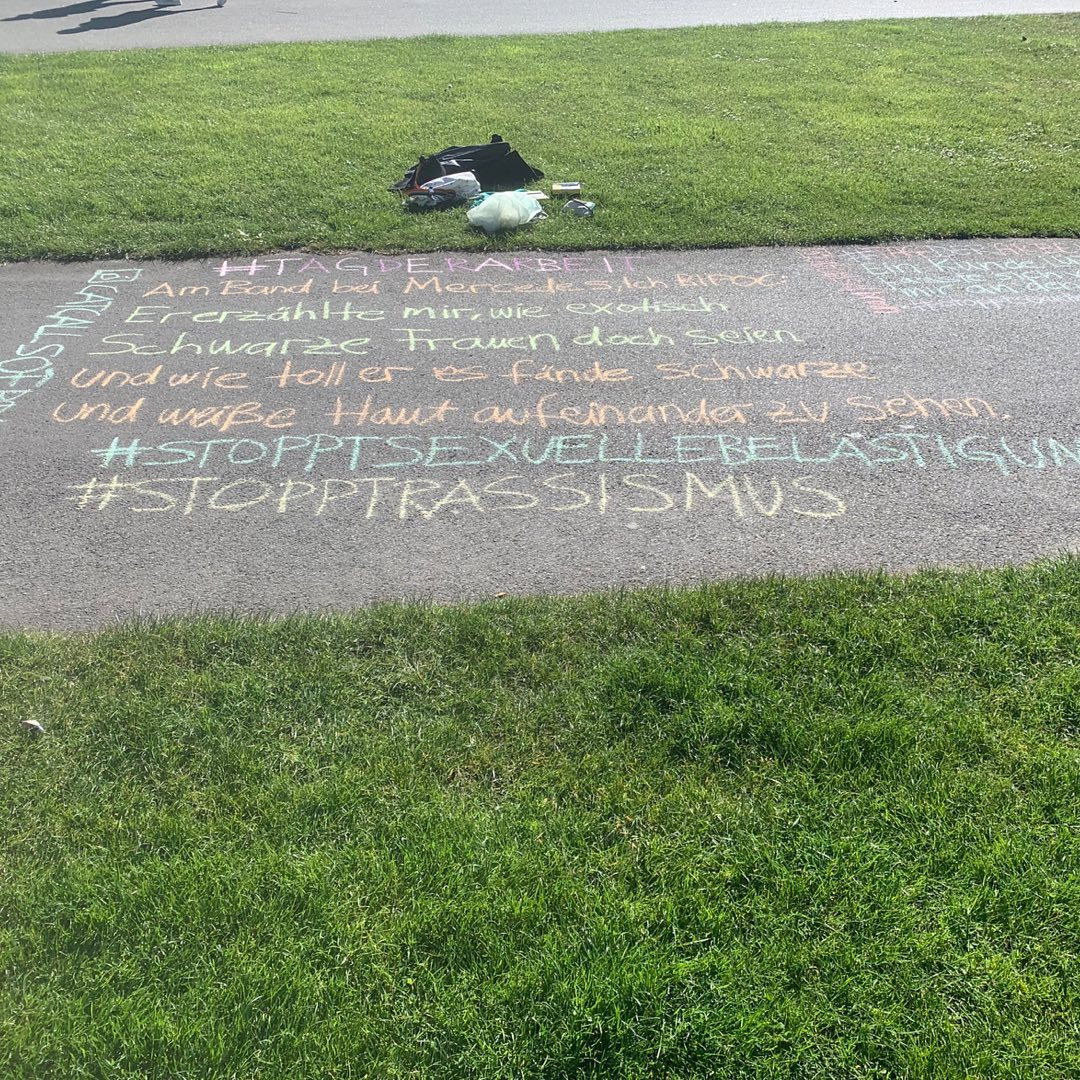 #TAGDERARBEIT
Am Band bei Mercedes. Ich BIPOC.
Er erzählte mir, wie exotisch
Schwarze Frauen doch seien
und wie toll er es fände schwarze
und weiße Haut aufeinander zu sehen.
#STOPPTSEXUELLEBELÄSTIGUN
#STOPPTRASSISMUS
CATCALLSOF
Ein Kunde
mir an den